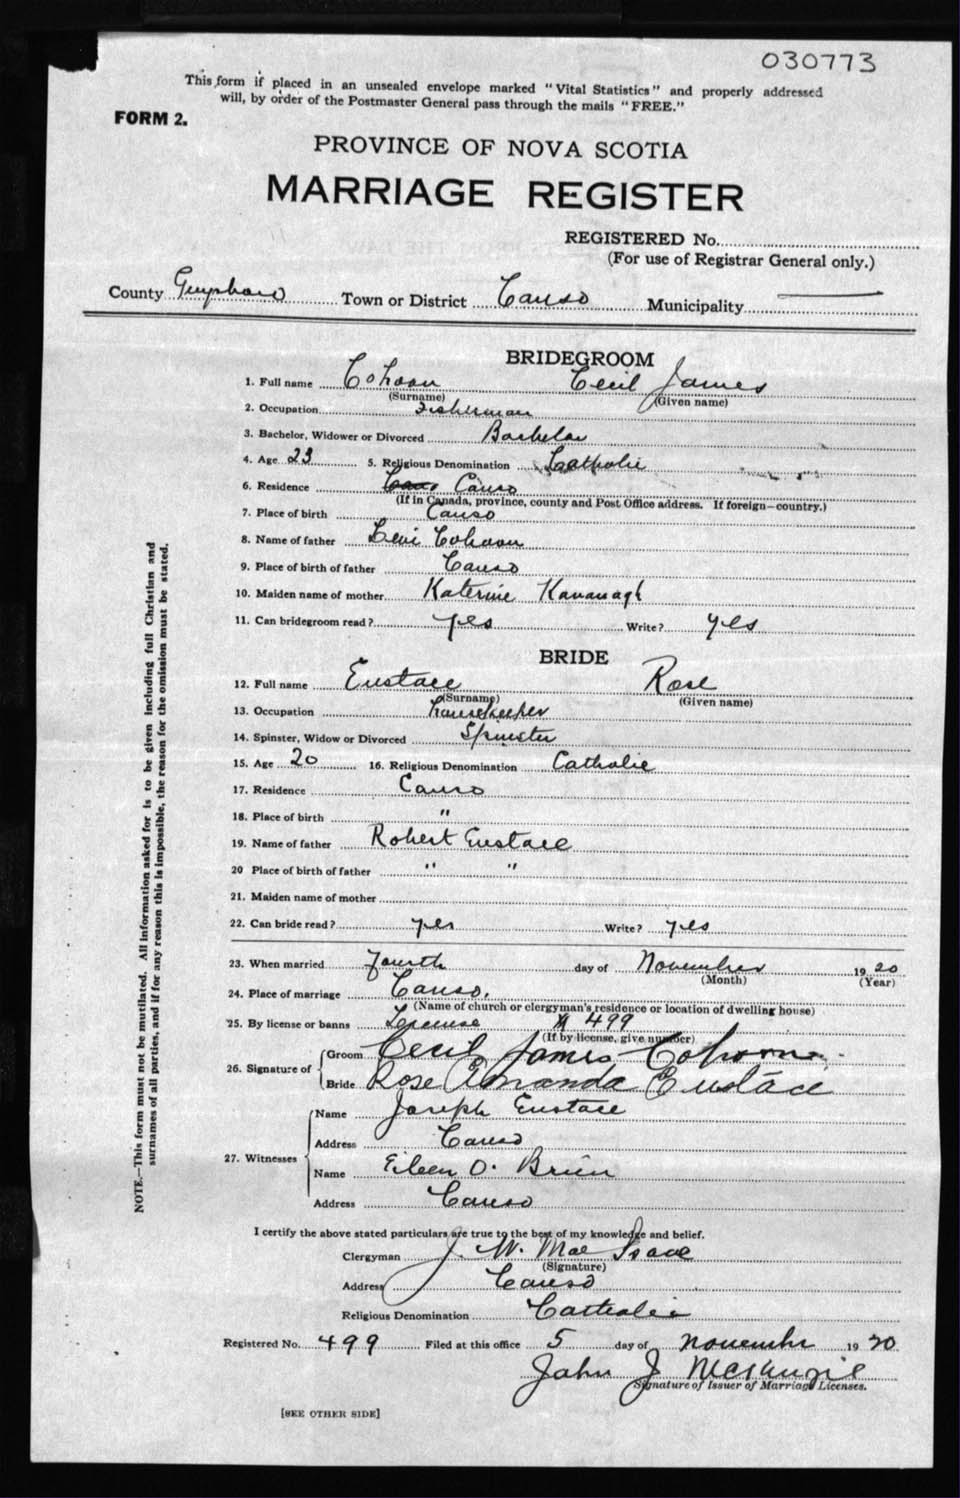 030773
This form if placed in an unsealed envelope marked "Vital Statistics" and properly addressed
will, by order of the Postmaster General pass through the mails "FREE."
FORM 2.
PROVINCE OF NOVA SCOTIA
MARRIAGE REGISTER
REGISTERED No.
(For use of Registrar General only.)
County Guysboro Town or District Canso Municipality
BRIDEGROOM
1. Full name Cohoon Cecil James
(Surname) (Given name)
2. Occupation Fisherman
3. Bachelor, Widower or Divorced Bachelor
4. Age 23 5. Religious Denomination Catholic
6. Residence Canso
(If in Canada, province, county and Post Office address. If foreign—country.)
7. Place of birth Canso
8. Name of father Levi Cohoon
9. Place of birth of father Canso
10. Maiden name of mother Katerine Kavanagh
11. Can bridegroom read? yes Write? yes
BRIDE
12. Full name Eustace Rose
(Surname) (Given name)
13. Occupation housekeeper
14. Spinster, Widow or Divorced Spinster
15. Age 20 16. Religious Denomination Catholic
17. Residence Canso
18. Place of birth "
19. Name of father Robert Eustace
20 Place of birth of father " "
21. Maiden name of mother
22. Can bride read? yes Write? yes
23. When married Fourth day of November 1920
(Month) (Year)
24. Place of marriage Canso.
(Name of church or clergyman's residence or location of dwelling house)
25. By license or banns License # 499
(If by license, give number)
26. Signature of Groom Cecil James Cohoon
Bride Rose Amanda Eustace
27. Witnesses
Name Joseph Eustace
Address Canso
Name Eileen O. Brien
Address Canso
I certify the above stated particulars are true to the best of my knowledge and belief.
Clergyman J. W. Mac Isaac
(Signature)
Address Canso
Religious Denomination Catholic
Registered No. 499 Filed at this office 5 day of November 1920
John J McKenzie
Signature of Issuer of Marriage Licenses.
[SEE OTHER SIDE]
NOTE.—This form must not be mutilated. All information asked for is to be given including full Christian and
surnames of all parties, and if for any reason this is impossible, the reason for the omission must be stated.